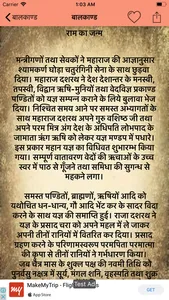 बालकाण्ड
बालकाण्ड
राम का जन्म
मन्त्रीगणों तथा सेवकों ने महाराज की आज्ञानुसार
श्यामकर्ण घोड़ा चतुरंगिनी सेना के साथ छुड़वा
दिया। महाराज दशरथ ने देश देशान्तर के मनस्वी,
तपस्वी, विद्वान ऋषि-मुनियों तथा वेदविज्ञ प्रकाण्ड
पण्डितों को यज्ञ सम्पन्न कराने के लिये बुलावा भेज
दिया। निश्चित समय आने पर समस्त अभ्यागतों के
साथ महाराज दशरथ अपने गुरु वशिष्ठ जी तथा
अपने परम मित्र अंग देश के अधिपति लोभपाद के
जामाता ऋंग ऋषि को लेकर यज्ञ मण्डप में पधारे।
इस प्रकार महान यज्ञ का विधिवत शुभारम्भ किया
गया। सम्पूर्ण वातावरण वेदों की ऋचाओं के उच्च
स्वर में पाठ से गूँजने तथा समिधा की सुगन्ध से
महकने लगा।
समस्त पण्डितों, ब्राह्मणों, ऋषियों आदि को
यथोचित धन-धान्य, गौ आदि भेंट कर के सादर विदा
करने के साथ यज्ञ की समाप्ति हुई। राजा दशरथ ने
यज्ञ के प्रसाद चरा को अपने महल में ले जाकर
अपनी तीनों रानियों में वितरित कर दिया। प्रसाद
ग्रहण करने के परिणामस्वरूप परमपिता परमात्मा
की कृपा से तीनों रानियों ने गर्भधारण किया।
जब चैत्र मास के शुक्ल पक्ष की नवमी तिथि को
पुनर्वसु नक्षत्र में सूर्य, मंगल शनि, वृहस्पति तथा शुक्र
MakeMyTrip - Fli
Test Ad